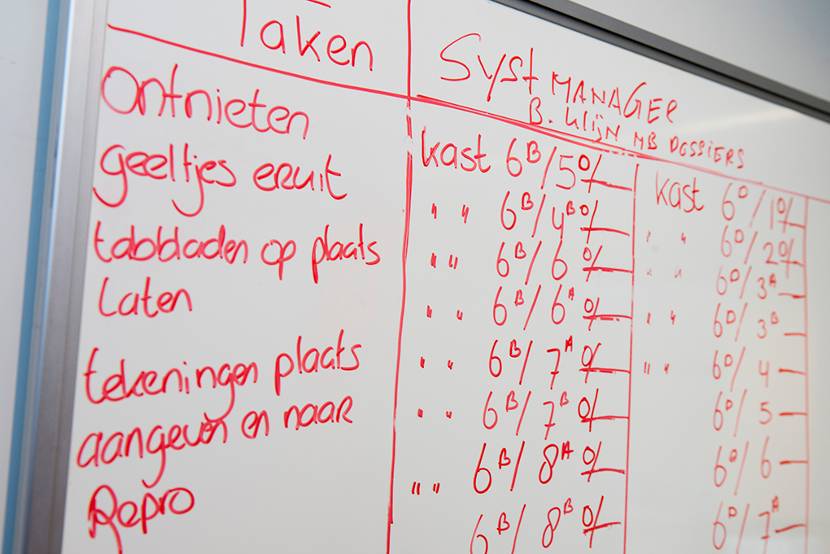 Taken
Ontnieten
geeltjes eruit
tabbladen op plaats
laten
tekeningen plaats
aangeven en naar
Repro
Syst MANAGER
B. Klijn MB DOSSIERS
kast 6B/5
" " 6B/4B
" " 6B/6
" " 6B/6A
" " 6B/7A
" " 6B/7B
" " 6B/8A
6B/8B
kast 6D/1
" " 6D/2
" " 6D/3A
" " 6D/3B
" " 6D/4
6D/5
6D/6
6D/7A